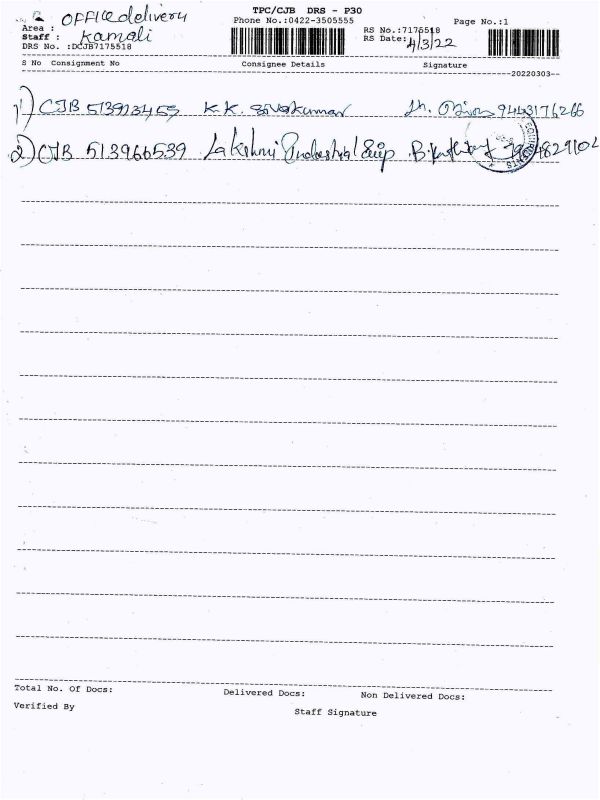 TPC/CJB DRS - P30
Area : OFFICe delivery
Phone No.:0422-3505555
Page No.:1
Staff : Kamali
RS No.:7175518
DRS No. :DCJB7175518
RS Date: 4/3/22
S No Consignment No Consignee Details Signature
20220303
1) CJB 513923459 K.K. Sivakumar 9443176266
2) CJB 513966539 Lakshmi Industrial Equip
Total No. Of Docs: Delivered Docs: Non Delivered Docs:
Verified By Staff Signature